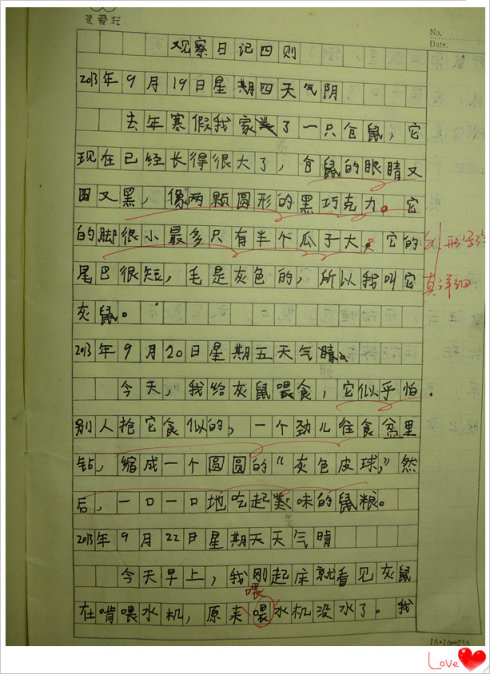 No.
Date.
观察日记四则
2013年9月19日星期四天气阴
去年寒假我家买了一只仓鼠，它
现在已经长得很大了，仓鼠的眼睛又
圆又黑，像两颗圆形的黑巧克力。它
的脚很小最多只有半个瓜子大。它的
尾巴很短，毛是灰色的，所以我叫它
真详细
灰鼠。
2013年9月20日星期五天气晴。
今天，我给灰鼠喂食，它似乎怕
别人抢它食似的，一个劲儿往食盆里
钻，缩成一个圆圆的“灰色皮球，”然
后，一口一口地吃起美味的鼠粮。
2013年9月22日星期天天气晴
今天早上，我刚起床就看见灰鼠
喂
在啃喂水机，原来喂水机没水了。我
Love